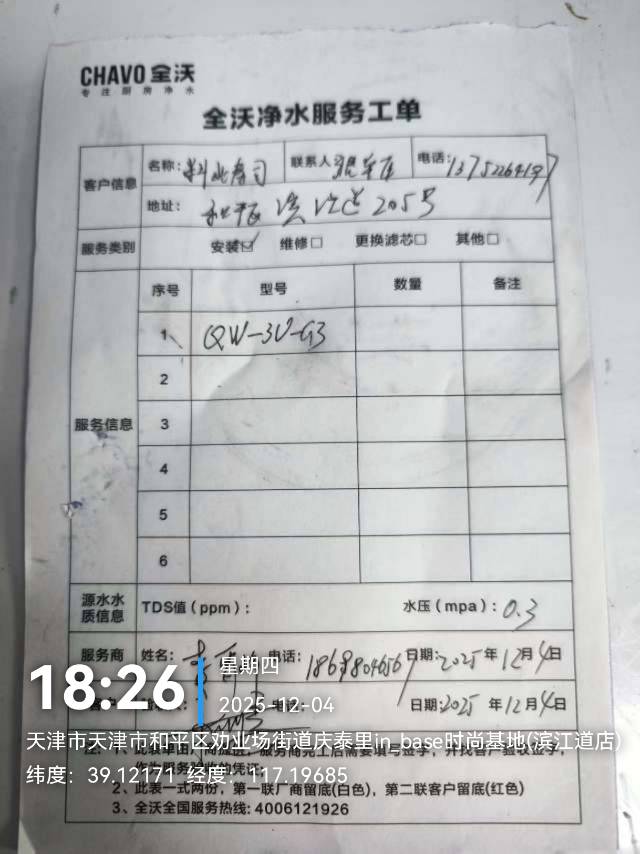 CHAVO 全沃
专注厨房净水
全沃净水服务工单
客户信息
名称:
寿司
联系人
电话: 13752264197
地址: 和平区滨江道205号
服务类别
安装☑ 维修□ 更换滤芯□ 其他□
服务信息
序号 型号 数量 备注
1、 QW-3U-G3
2
3
4
5
6
源水水质信息
TDS值（ppm）:
水压（mpa）: 0.3
服务商 姓名: 电话: 日期: 2025 年 12 月 4 日
日期: 2025 年 12 月 4 日
18:26
星期四
2025-12-04
天津市天津市和平区劝业场街道庆泰里in_base时尚基地(滨江道店)
纬度: 39.12171 经度: 117.19685
2、此表一式两份，第一联厂商留底(白色)，第二联客户留底(红色)
3、全沃全国服务热线: 4006121926